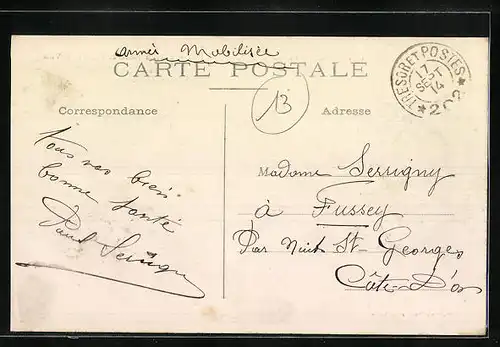 armée Mobilisée
CARTE POSTALE
TRESOR ET POSTES
17
SEPT
14
* 202 *
13
Correspondance
Adresse
bonne santé
Paul Serrigny
Madame Serrigny
à Fussey
Par Nuit St Georges
Côte-D'or